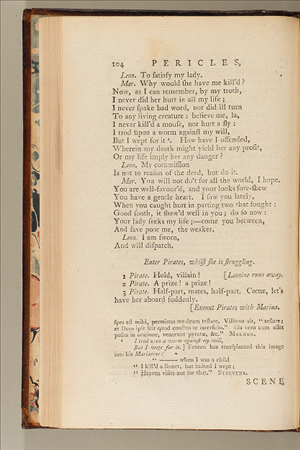 104 PERICLES,
Leon. To satisfy my lady.
Mar. Why would she have me kill'd?
Now, as I can remember, by my troth,
I never did her hurt in all my life;
I never spake bad word, nor did ill turn
To any living creature: believe me, la,
I never kill'd a mouse, nor hurt a fly:
I trod upon a worm against my will,
But I wept for it. How have I offended,
Wherein my death might yield her any profit,
Or my life imply her any danger?
Leon. My commission
Is not to reason of the deed, but do it.
Mar. You will not do't for all the world, I hope.
You are well-favour'd, and your looks fore-shew
You have a gentle heart. I saw you lately,
When you caught hurt in parting two that fought:
Good sooth, it shew'd well in you; do so now:
Your lady seeks my life;—come you between,
And save poor me, the weaker.
Leon. I am sworn,
And will dispatch.
Enter Pirates, whilst she is struggling.
1 Pirate. Hold, villain! [Leonine runs away.
2 Pirate. A prize! a prize!
3 Pirate. Half-part, mates, half-part. Come, let's
have her aboard suddenly.
[Exeunt Pirates with Marina.
I trod upon a worm against my will,
But I wept for it.] Fenton has transplanted this image
into his Mariamne:
“ —— when I was a child
“ I kill'd a linnet, but indeed I wept;
“ Heaven visits not for that.” STEEVENS.
SCENE